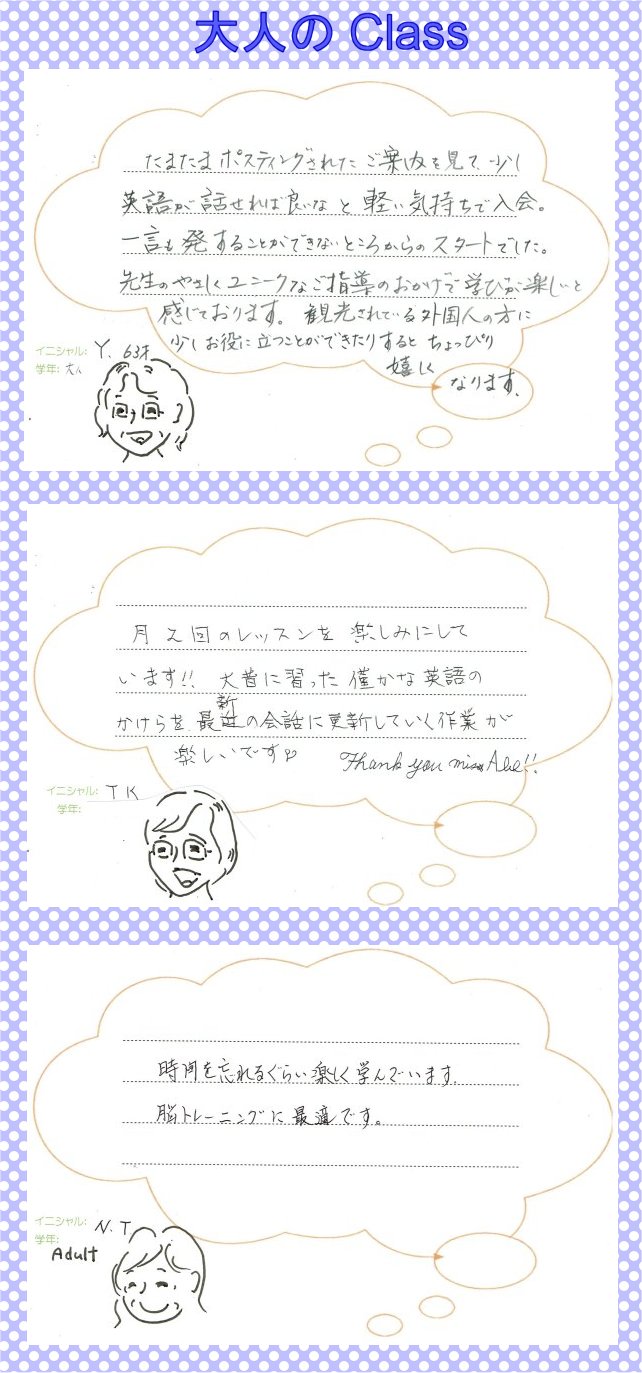 大人の Class
たまたまポスティングされたご案内を見て少し
英語が話せれば良いなと軽い気持ちで入会。
一言も発することができないところからのスタートでした。
先生のやさしくユニークなご指導のおかげで学びが楽しいと
感じております。観光されている外国人の方に
少しお役に立つことができたりするとちょっぴり
嬉しく
なります。
イニシャル: Y. 63才
学年: 大人
月2回のレッスンを楽しみにして
います!! 大昔に習った僅かな英語の
新
かけらを最近の会話に更新していく作業が
楽しいです♡ Thank you miss Abe!!
イニシャル: TK
学年:
時間を忘れるぐらい楽しく学んでいます.
脳トレーニングに最適です。
イニシャル: N.T
学年:
Adult